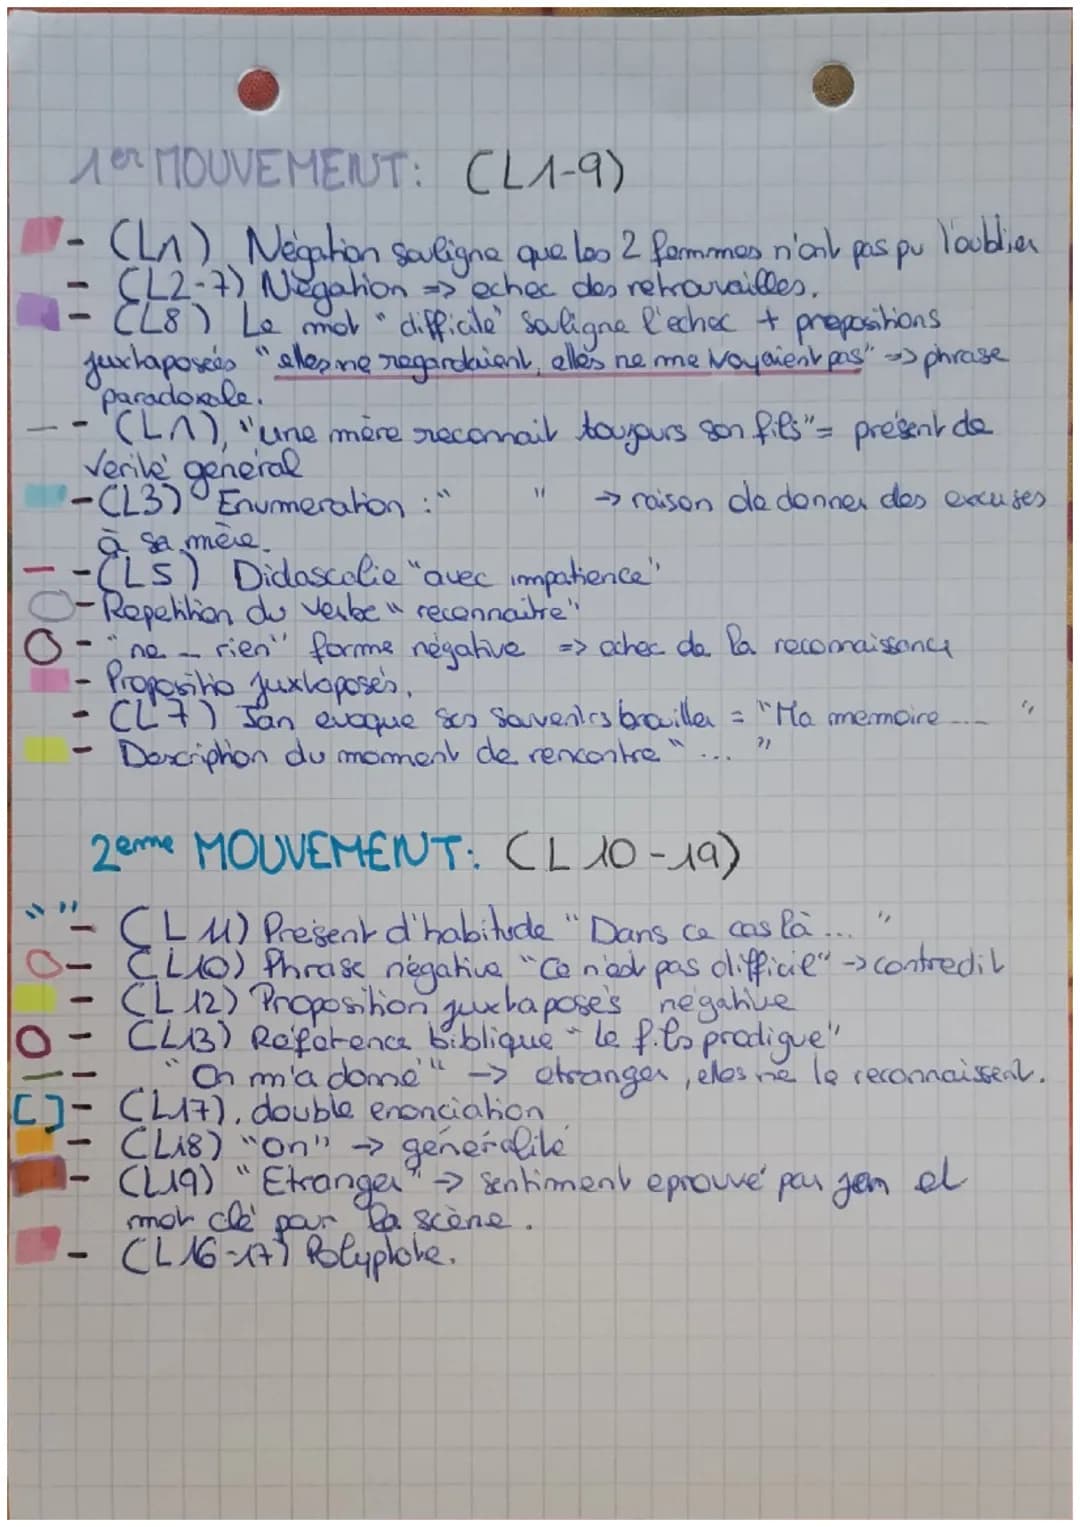 1er MOUVEMENT: (L1-9)
- (L1) Négation souligne que les 2 femmes n'ont pas pu l'oublier
- (L2-7) Négation => echec des retrouvailles.
- (L8) Le mot "difficile" souligne l'echec + propositions
juxtaposées "elles me regardaient, elles ne me voyaient pas" => phrase
paradoxale.
- (L1), "une mère reconnait toujours son fils" = présent de
verité général
- (L3) Enumeration : " " → raison de donner des excuses
à sa mère.
- (L5) Didascalie "avec impatience"
- Repetition du verbe "reconnaitre"
- "ne _ rien" forme négative => echec de la reconnaissance
- Propositio juxtaposés.
- (L7) Jan evoque ses souvenirs brouiller = "Ma memoire ... "
- Description du moment de rencontre " ... "
2eme MOUVEMENT: (L10-19)
" " - (L11) Présent d'habitude "Dans ce cas là ... "
- (L10) Phrase négative "Ce n'est pas difficil" → contredit
- (L12) Proposition juxtaposés négative
- (L13) Réference biblique "le fils prodigue"
- "On m'a donné" → etranger, elles ne le reconnaissent.
[ ] - (L17). double enonciation
- (L18) "on" → généralité
- (L19) "Etranger" → sentiment eprouvé par jan et
mot clé par la scène.
- (L16-17) Polyptote.